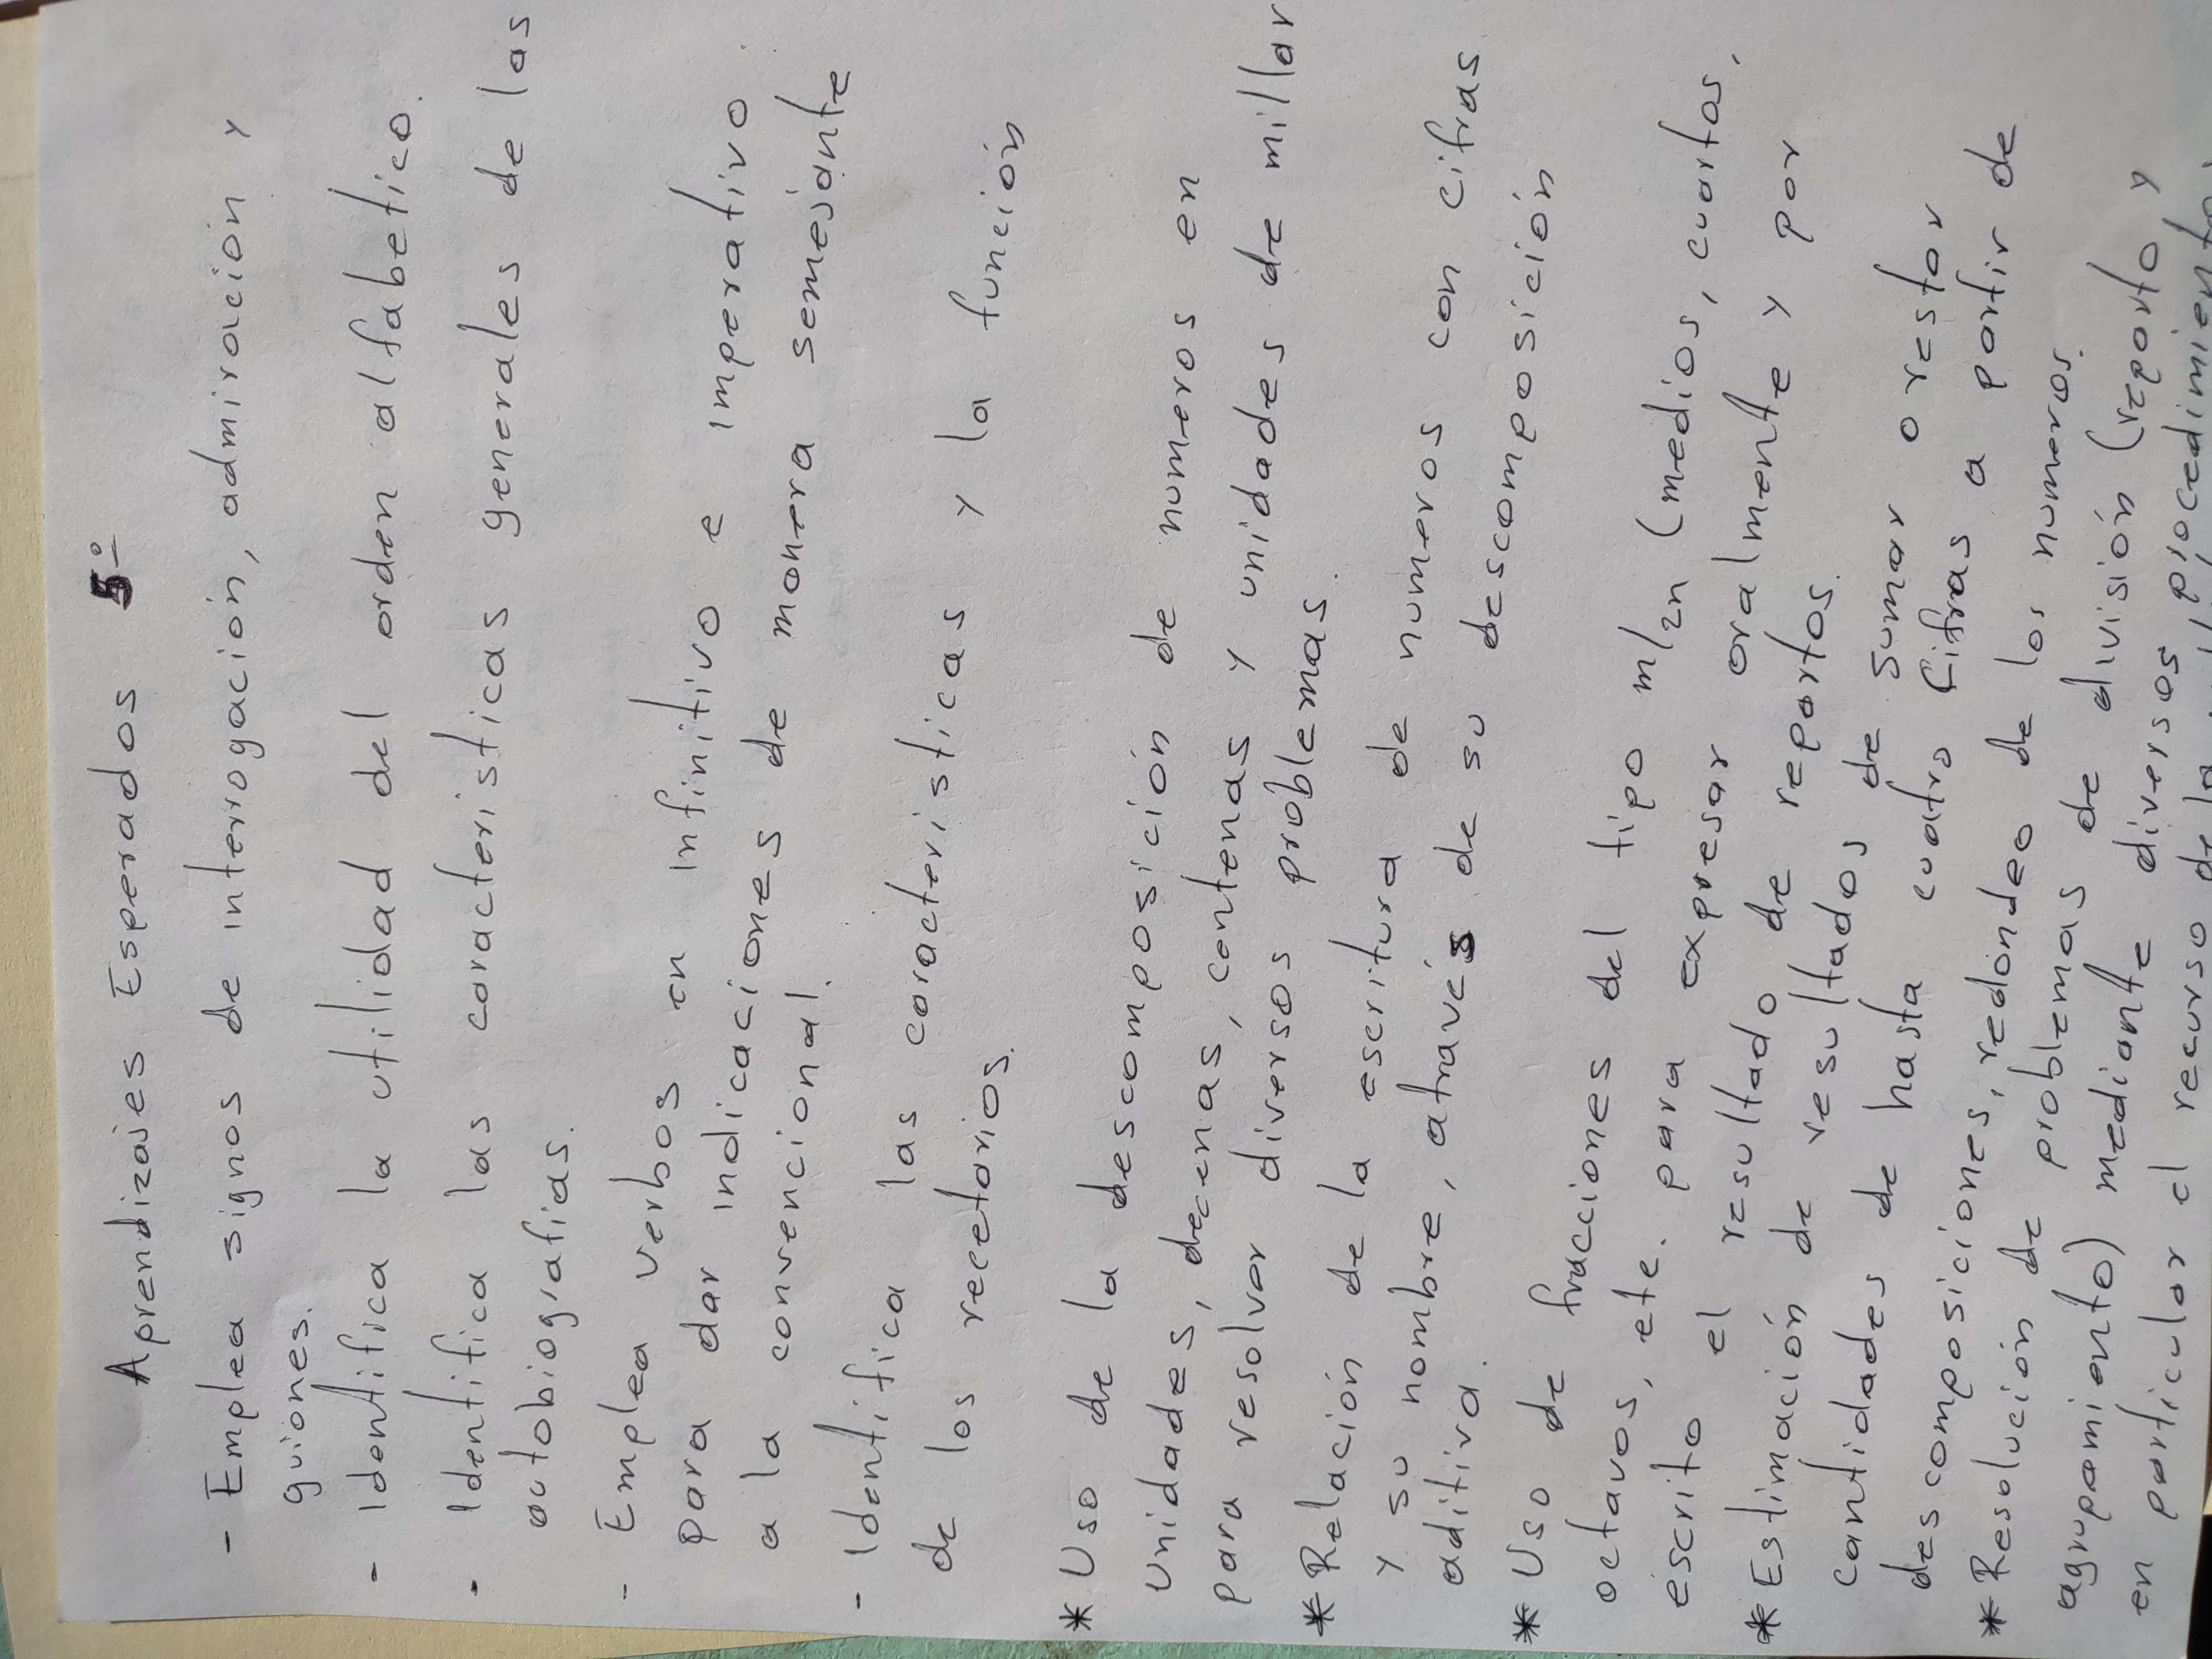 Aprendizajes Esperados 5°
- Emplea signos de interrogación, admiración y
guiones.
- Identifica la utilidad del orden alfabetico.
- Identifica las caracteristicas generales de las
autobiografias.
- Emplea verbos en infinitivo e imperativo
para dar indicaciones de manera semejante
a la convencional.
- Identifica las caracteristicas y la función
de los recetarios.
* Uso de la descomposición de numeros en
unidades, decenas, centenas y unidades de millar
para resolver diversos problemas.
* Relación de la escritura de numeros con cifras
y su nombre, através de su descomposición
aditiva.
* Uso de fracciones del tipo m/2n (medios, cuartos,
octavos, etc. para expresar oralmente y por
escrito el resultado de repartos.
* Estimación de resultados de sumar o restar
cantidades de hasta cuatro cifras a partir de
descomposiciones, redondeo de los numeros.
* Resolución de problemas de división (reparto y
agrupamiento) mediante diversos procedimientos
en particular el recurso de la